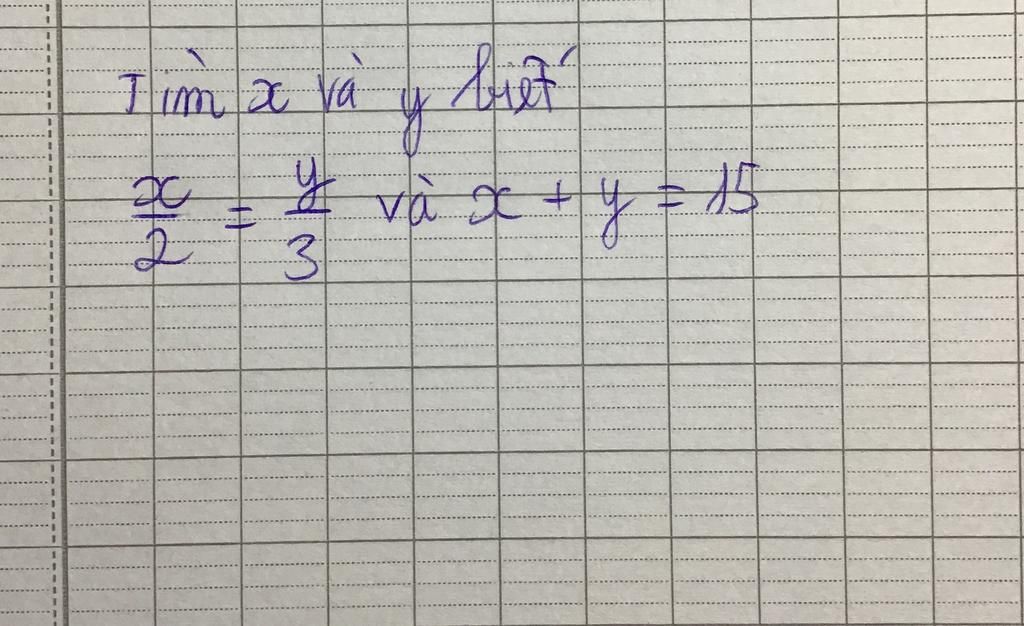 Tìm x và y biết
x/2 = y/3 và x + y = 15